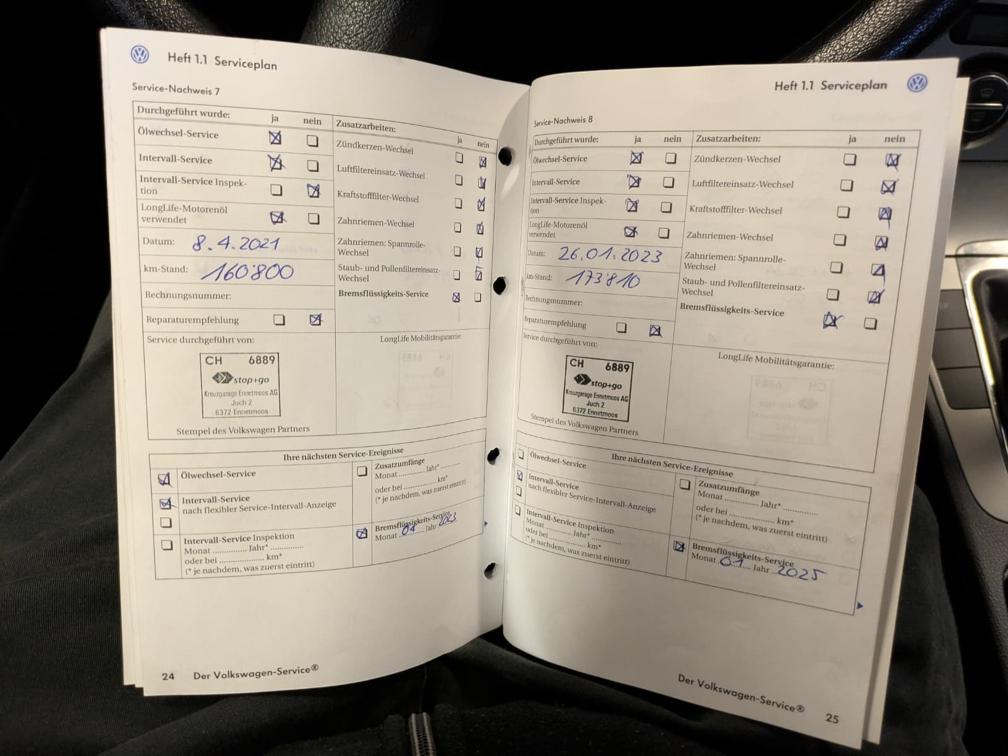 Heft 1.1 Serviceplan
Service-Nachweis 7
Durchgeführt wurde: ja nein
Ölwechsel-Service
Intervall-Service
Intervall-Service Inspek-
tion
LongLife-Motorenöl
verwendet
Datum: 8.4.2021
km-Stand: 160'800
Rechnungsnummer:
Reparaturempfehlung
Zusatzarbeiten: ja nein
Zündkerzen-Wechsel
Luftfiltereinsatz-Wechsel
Kraftstofffilter-Wechsel
Zahnriemen-Wechsel
Zahnriemen: Spannrolle-
Wechsel
Staub- und Pollenfiltereinsatz-
Wechsel
Bremsflüssigkeits-Service
Service durchgeführt von:
CH 6889
stop+go
Kreuzgarage Ennetmoos AG
Juch 2
6372 Ennetmoos
Stempel des Volkswagen Partners
LongLife Mobilitätsgarantie:
Ihre nächsten Service-Ereignisse
Ölwechsel-Service
Intervall-Service
nach flexibler Service-Intervall-Anzeige
Intervall-Service Inspektion
Monat ............ Jahr* ............
oder bei .................. km*
(* je nachdem, was zuerst eintritt)
Zusatzumfänge
Monat ............ Jahr* ............
oder bei .................. km*
(* je nachdem, was zuerst eintritt)
Bremsflüssigkeits-Service
Monat 04 Jahr 2023
24 Der Volkswagen-Service®
Heft 1.1 Serviceplan
Service-Nachweis 8
Durchgeführt wurde: ja nein
Ölwechsel-Service
Intervall-Service
Intervall-Service Inspek-
tion
LongLife-Motorenöl
verwendet
Datum: 26.01.2023
km-Stand: 173'810
Rechnungsnummer:
Reparaturempfehlung
Zusatzarbeiten: ja nein
Zündkerzen-Wechsel
Luftfiltereinsatz-Wechsel
Kraftstofffilter-Wechsel
Zahnriemen-Wechsel
Zahnriemen: Spannrolle-
Wechsel
Staub- und Pollenfiltereinsatz-
Wechsel
Bremsflüssigkeits-Service
Service durchgeführt von:
CH 6889
stop+go
Kreuzgarage Ennetmoos AG
Juch 2
6372 Ennetmoos
Stempel des Volkswagen Partners
LongLife Mobilitätsgarantie:
Ihre nächsten Service-Ereignisse
Ölwechsel-Service
Intervall-Service
nach flexibler Service-Intervall-Anzeige
Intervall-Service Inspektion
Monat ............ Jahr* ............
oder bei .................. km*
(* je nachdem, was zuerst eintritt)
Zusatzumfänge
Monat ............ Jahr* ............
oder bei .................. km*
(* je nachdem, was zuerst eintritt)
Bremsflüssigkeits-Service
Monat 01 Jahr 2025
Der Volkswagen-Service® 25